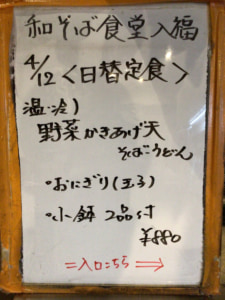 和そば食堂入福
4/12〈日替定食〉
温・冷)
野菜かきあげ天
そば・うどん
・おにぎり(玉子)
・小鉢 2品付
¥880
=入口こちら⇒